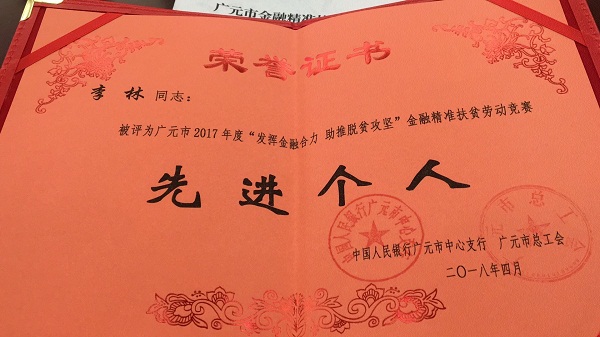 广元市金融精准扶
荣誉证书
李林同志：
被评为广元市2017年度“发挥金融合力 助推脱贫攻坚”金融精准扶贫劳动竞赛
先进个人
中国人民银行广元市中心支行 广元市总工会
二〇一八年四月
中国人民银行广元市中心支行
市总工会